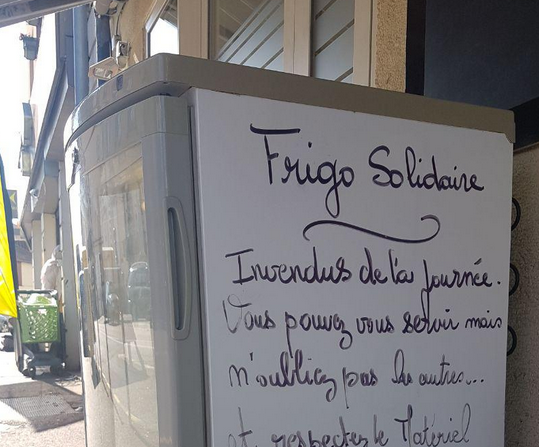 Frigo Solidaire
Invendus de la journée.
Vous pouvez vous servir mais
n'oubliez pas les autres...
et respectez le Matériel